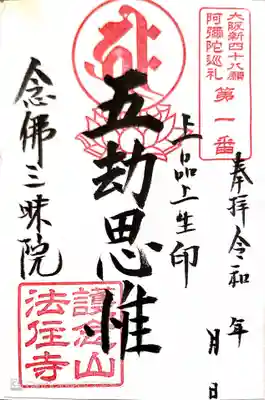 大阪新四十八願
阿彌陀巡礼
第一番
奉拝令和　年
月　日
上品上生印
五劫思惟
念佛三昧院
護念山
法住寺